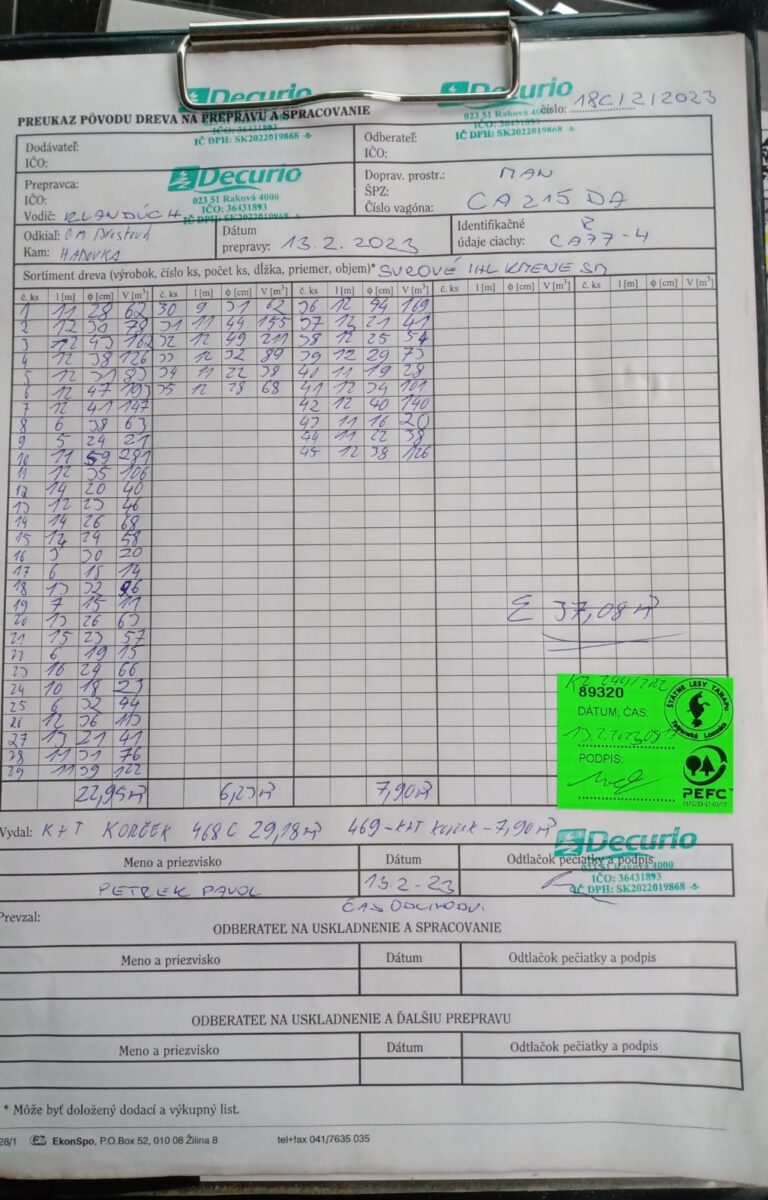 Decurio
Decurio
023 51 Raková 4000
číslo: 18C/2/2023
PREUKAZ PÔVODU DREVA NA PREPRAVU A SPRACOVANIE
IČO: 36431893
IČ DPH: SK2022019868 -6-
IČ DPH: SK2022019868 -6-
Dodávateľ:
IČO:
Odberateľ:
IČO:
Decurio
023 51 Raková 4000
IČO: 36431893
IČ DPH: SK2022019868 -6-
Prepravca:
IČO:
Vodič: KLANDÚCH
Doprav. prostr.: MAN
ŠPZ:
Číslo vagóna: CA 215 DA
Odkiaľ: O.M.
Kam: HADOVKA
Dátum
prepravy: 13.2.2023
Identifikačné
údaje ciachy: CA77-4
Sortiment dreva (výrobok, číslo ks, počet ks, dĺžka, priemer, objem)* SUROVÉ IHL KMENE SM
č. ks l [m] ϕ [cm] V [m³] č. ks l [m] ϕ [cm] V [m³] č. ks l [m] ϕ [cm] V [m³] č. ks l [m] ϕ [cm] V [m³] č. ks l [m] ϕ [cm] V [m³]
1 11 28 62 30 9 31 62 36 12 44 169
2 12 30 78 31 11 44 155 37 12 21 41
3 12 43 162 32 12 49 211 38 12 25 54
4 12 38 126 33 12 32 89 39 12 29 73
5 12 31 83 34 11 22 38 40 11 19 28
6 12 47 193 35 12 28 68 41 12 34 101
7 12 41 147 42 12 40 140
8 6 38 63 43 11 16 20
9 5 24 21 44 11 22 38
10 11 59 281 45 12 38 126
11 12 35 106
12 14 20 40
13 12 23 46
14 14 26 68
15 12 24 58
16 3 30 20
17 6 18 14
18 13 32 96
19 7 15 11
20 13 26 63
21 15 23 57
22 6 19 15
23 16 24 66
24 10 18 23
25 6 32 44
26 12 36 113
27 13 21 41
28 11 31 76
29 11 39 122
Σ 37,08 m³
89320
DÁTUM; ČAS:
PODPIS:
ŠTÁTNE LESY TANAPU
Tatranská Lomnica
PEFC
22,95 m³ 6,23 m³ 7,90 m³
Vydal: K+T KORČEK 468C 29,18 m³ 469-K+T - 7,90 m³
Decurio
Meno a priezvisko Dátum Odtlačok pečiatky a podpis
023 51 Raková 4000
IČO: 36431893
IČ DPH: SK2022019868 -6-
PETREK PAVOL 13.2-23
ČAS ODCHODU.
Prevzal:
ODBERATEĽ NA USKLADNENIE A SPRACOVANIE
Meno a priezvisko Dátum Odtlačok pečiatky a podpis
ODBERATEĽ NA USKLADNENIE A ĎALŠIU PREPRAVU
Meno a priezvisko Dátum Odtlačok pečiatky a podpis
* Môže byť doložený dodací a výkupný list.
28/1 EkonSpo, P.O.Box 52, 010 08 Žilina 8 tel+fax 041/7635 035